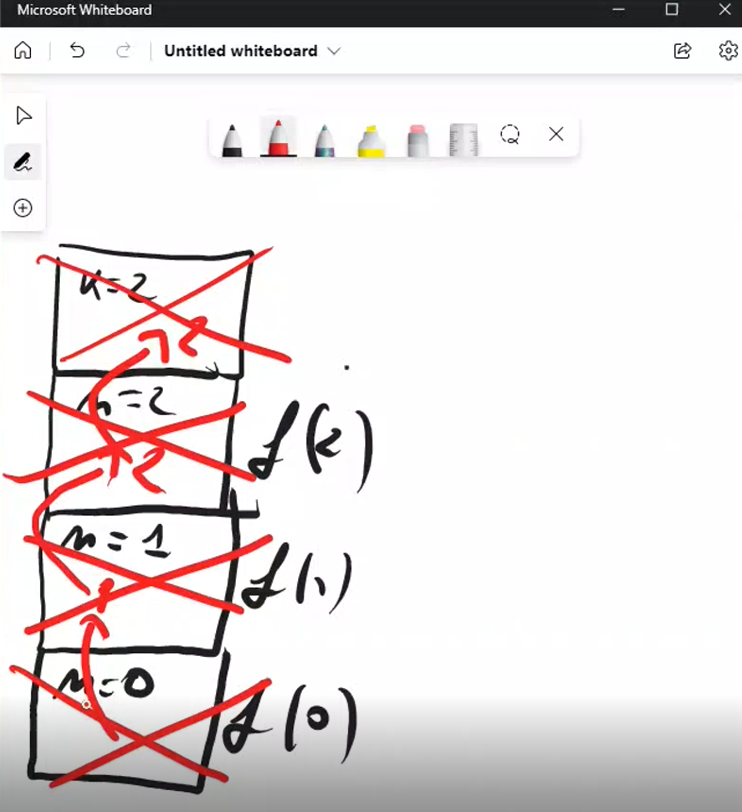 Microsoft Whiteboard
Untitled whiteboard
k=2
2
n=2
f(2)
2
n=1
f(1)
n=0
f(0)